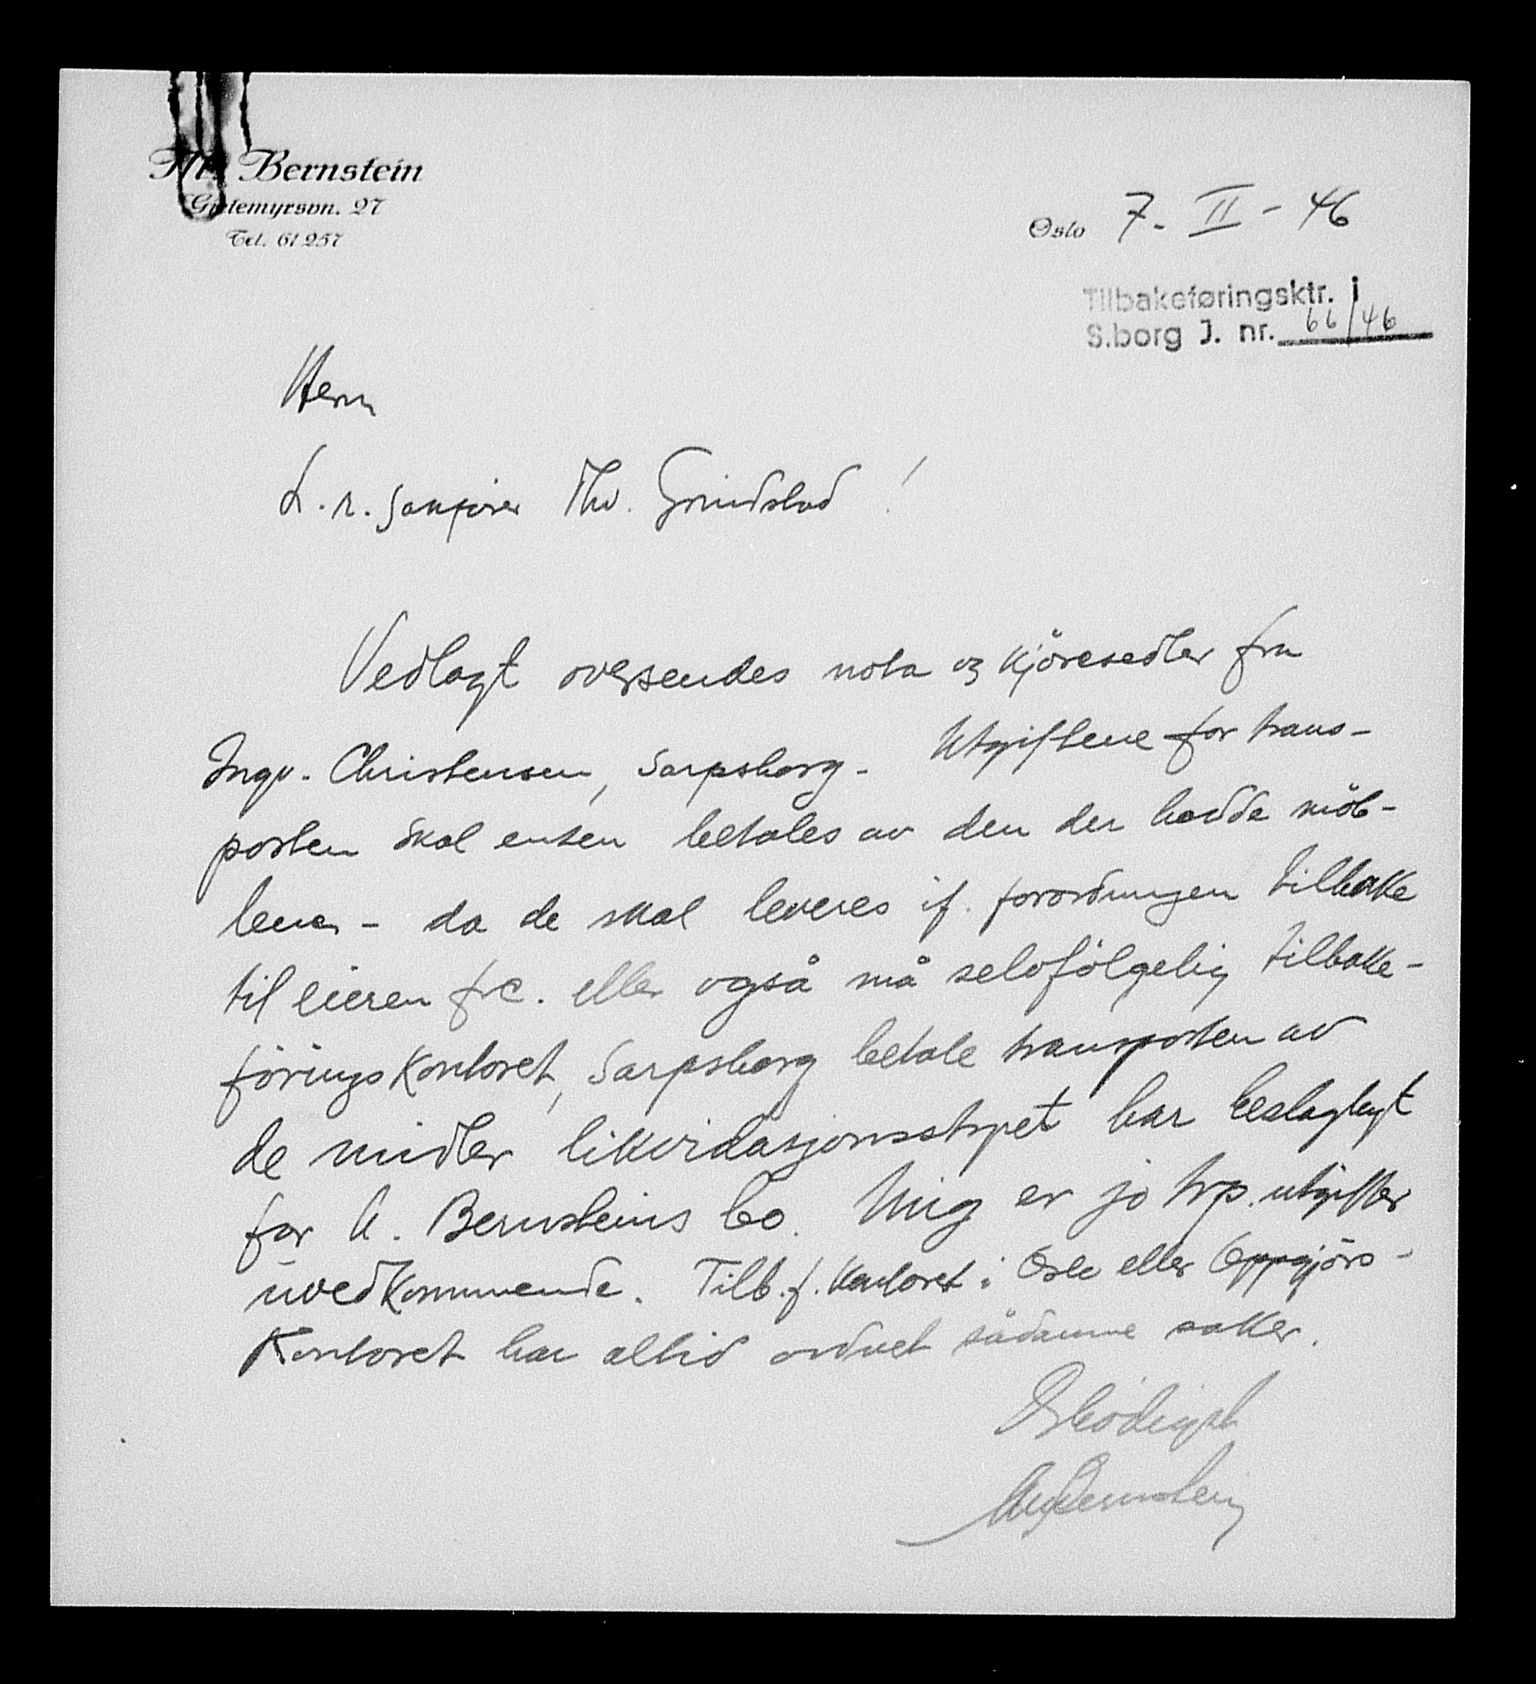 Bernstein
Gjetemyrsvn. 27
Tel. 61 257
Oslo 7. II - 46
Tilbakeføringsktr. i
S.borg J. nr. 66/46
Herr
L. r. sakfører Thv. Grindstad !
Vedlagt oversendes nota og kjöresedler fra
Ingv. Christensen, Sarpsborg. Utgiftene for trans-
porten skal enten betales av den der hadde möb-
lene - da de skal leveres if. forordningen tilbake
til eieren frc. eller også må selvfölgelig tilbake-
förings kontoret, Sarpsborg betale transporten av
de midler likvidasjonsstyret har beslaglagt
for A. Bernsteins bo. Mig er jo trp. utgifter
uvedkommende. Tilb.f. kontoret i Oslo eller Oppgjörs-
Kontoret har altid ordnet sådanne saker.
Ærbödigst
Bernstein